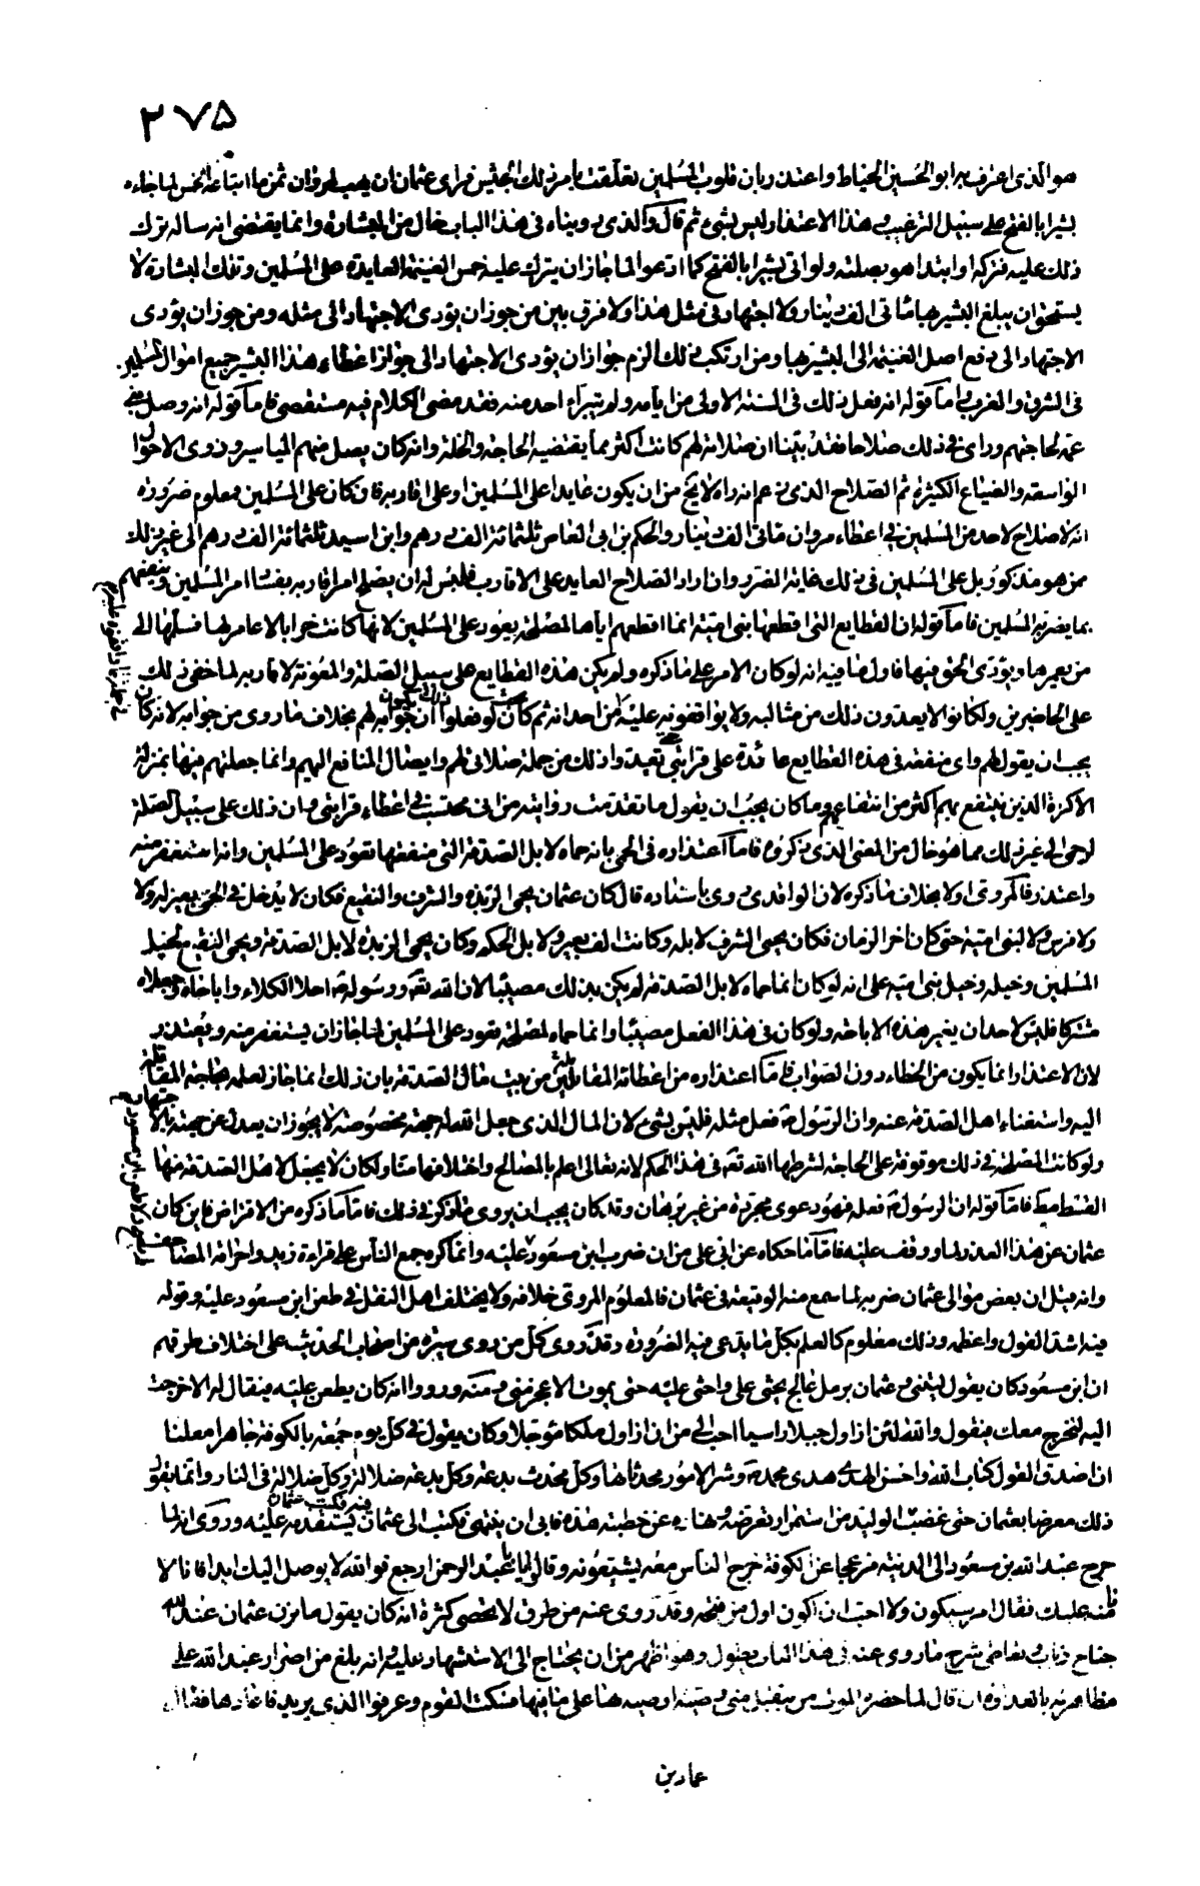 ٢٧٥
هو الذى اعترف به ابو الحسين الخياط واعتذر بان قلوب المسلمين تعلقت بامر ذلك الجيش فراى عثمان ان يهب لمروان ثمن ما ابتاعه الخمس لما جاءه
بشيرا بالفتح على سبيل الترغيب وهذا الاعتذار ليس بشئ ثم قال والذى رويناه فى هذا الباب خال من البشارة وانما يقتضى انه ساله ترك
ذلك عليه فتركه او ابتدا هو بصلته ولو اتى بشيرا بالفتح كما ادعوا لما جاز ان يترك عليه خمس الغنيمة العايدة على المسلمين وتلك البشارة لا
يستحق ان يبلغ البشير بها مائتى الف دينار ولا اجتهاد فى مثل هذا ولا فرق بين من جوز ان يؤدى الاجتهاد الى مثله ومن جوز ان يؤدى
الاجتهاد الى دفع اصل الغنيمة الى البشير بها ومن ارتكب ذلك الزم جواز ان يؤدى الاجتهاد الى جواز اعطاء هذا البشير جميع اموال المسلمين
فى الشرق والغرب واما قوله انه فعل ذلك فى السنة الاولى من ايامه ولم يتبراء احد منه فقد مضى الكلام فيه مستقصى فاما قوله انه وصل بنى
عمه لحاجتهم وراى فى ذلك صلاحا فقد بينا ان صلاته لهم كانت اكثر مما يقتضيه الحاجة والخلة وانه كان يصل منهم المياسير وذوى الاحوال
الواسعة والضياع الكثيرة ثم الصلاح الذى زعم انه راه لا يخ من ان يكون عايدا على المسلمين او على اقاربه فان كان على المسلمين فمعلوم ضرورة
انه لا صلاح لاحد من المسلمين فى اعطاء مروان مائتى الف دينار والحكم بن ابى العاص ثلثمائة الف درهم وابن اسيد ثلثمائة الف درهم الى غير ذلك
ممن هو مذكور بل على المسلمين فى ذلك غاية الضرر وان اراد الصلاح العايد على الاقارب فليس له ان يصلح امر اقاربه بفساد امر المسلمين وينفعهم
بما يضر به المسلمين فاما قوله ان القطايع التى اقطعها بنى امية انما اقطعهم اياها لمصلحة يعود على المسلمين لانها كانت خرابا لا عامر لها فسلمها الى
من يعمرها ويؤدى الحق فيها فاول ما فيه انه لو كان الامر على ما ذكره ولم يكن هذه القطايع على سبيل الصلة والمعونة لاقاربه لما خفى ذلك
على الحاضرين ولكانوا لا يعدون ذلك من مثالبه ولا يواقفونه عليه من احداثه ثم كان لو فعلوا ذلك ان يكون جوابه لهم بخلاف ما روى من جوابه لانه كان
يجب ان يقول لهم واى منفعة فى هذه القطايع عائدة على قرابتى حتى تعد ذلك من جملة صلاتى لهم وايصال المنافع اليهم وانما جعلتهم فيها بمنزلة
الاكرة الذين ينتفع بهم اكثر من انتفاعهم وما كان يجب ان يقول ما تقدمت روايته من انى محتسب فى اعطاء قرابتى وان ذلك على سبيل الصلة
لرحمى الى غير ذلك مما هو خال من المعنى الذى ذكروه فاما اعتذاره فى الحمى بانه حماه لابل الصدقة التى منفعتها تعود على المسلمين وانه استغفر منه
واعتذر فالمروى اولا بخلاف ما ذكره لان الواقدى روى باسناده قال كان عثمان يحمى الربذة والشرف والنقيع فكان لا يدخل فى الحمى بعير له ولا
ولا فرس ولا لبنى امية حتى كان اخر الزمان فكان يحمى الشرف لابله وكانت الف بعير ولابل الحكم وكان يحمى الربذة لابل الصدقة ويحمى النقيع لخيل
المسلمين وخيله وخيل بنى امية على انه لو كان انما حماه لابل الصدقة لم يكن بذلك مصيبا لان الله تعه ورسوله ص احلا الكلاء واباحاه وجعلاه
مشتركا فليس لاحد ان يغير هذه الاباحة ولو كان فى هذا الفعل مصيبا وانما حماه لمصلحة يعود على المسلمين لما جاز ان يستغفر منه ويعتذر
لان الاعتذار انما يكون من الخطاء دون الصواب فاما اعتذاره من اعطائه المقاتلين من بيت مال الصدقة بان ذلك انما جاز لعلمه بحاجة المقاتلة
اليه واستغناء اهل الصدقة عنه وان الرسول ص فعل مثله فليس بشئ لان المال الذى جعل الله له جهة مخصوصة لا يجوز ان يعدل عن جهته بالاجتهاد
ولو كانت المصلحة فى ذلك موقوفة على الحاجة لشرطها الله تعه فى هذا الحكم لانه تعالى اعلم بالمصالح واختلافها منا ولكان لا يجعل لاهل الصدقة منها
القسط مط فاما قوله ان الرسول ص فعله فهو دعوى مجردة من غير برهان وقد كان يجب ان يروى ما ذكر فى ذلك فاما ما ذكره من الاقتراض فاين كان
عثمان عن هذا العذر لما ووقف عليه فاما ما حكاه عن ابى على من ان ضرب ابن مسعود عليه وانما كره جمع الناس على قراءة زيد واحراقه المصاحف
وانه قيل ان بعض موالى عثمان ضربه لما سمع منه الوقيعة فى عثمان فالمعلوم المروى خلافه ولا يختلف اهل النقل فى طعن ابن مسعود عليه وقوله
فيه اشد القول واعظمه وذلك معلوم كالعلم بكل ما يدعى فيه الضرورة وقد روى كل من روى سيرته من اصحاب الحديث على اختلاف طرقهم
ان ابن مسعود كان يقول ليتنى وعثمان برمل عالج يحثى على واحثى عليه حتى يموت الاعجز منى ومنه ورووا انه كان يطعن عليه فيقال له الا خرجت
اليه لنخرج معك فيقول والله لئن ازاول جبلا راسيا احب الى من ان ازاول ملكا مؤجلا وكان يقول فى كل يوم جمعة بالكوفة جاهرا معلنا
ان اصدق القول كتاب الله واحسن الهدى هدى محمد ص وشر الامور محدثاتها وكل محدث بدعة وكل بدعة ضلالة وكل ضلالة فى النار وانما يقول
ذلك معرضا بعثمان حتى غضب الوليد من استمرار تعرضه ونهاه عن خطبته هذه فابى ان ينتهى فكتب الى عثمان فيه فكتب عثمان يستقدمه عليه وروى انه لما
خرج عبد الله بن مسعود الى المدينة مزعجا عن الكوفة خرج الناس معه يشيعونه وقالوا يا با عبد الرحمن ارجع فوالله لا يوصل اليك ابدا فانا لا
نامنه عليك فقال امر سيكون ولا احب ان اكون اول من فتحه وقد روى عنه من طرق لا تحصى كثرة انه كان يقول ما يزن عثمان عند الله
جناح ذباب وتعاطى شرح ما روى عنه فى هذا الباب يطول وهو اظهر من ان يحتاج الى الاستشهاد عليه وانه بلغ من اصرار عبد الله على
مظاهرته بالعداوة ان قال لما حضره الموت من يتقبل منى وصية اوصيه بها على ما فيها فسكت القوم وعرفوا الذى يريد فاعادها فقال
عمار بن